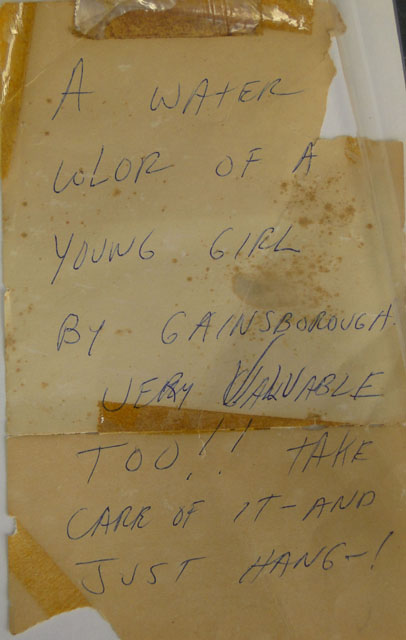 A WATER
COLOR OF A
YOUNG GIRL
BY GAINSBOROUGH
VERY VALUABLE
TOO!! TAKE
CARE OF IT - AND
JUST HANG - !